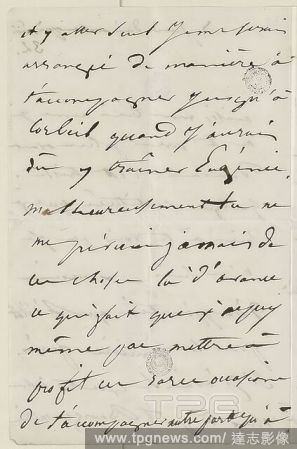 et y aller seul je me serais
arrangé de manière à
t'accompagner jusqu'à
Corbeil quand j'aurais
dû y traîner Eugénie.
malheureusement tu ne
me préviens jamais de
ces choses là d'avance
ce qui fait que je ne puis
même pas mettre à
profit ces rares occasions
de t'accompagner autre part qu'à
TPG
www.tpgnews.com / 達志影像